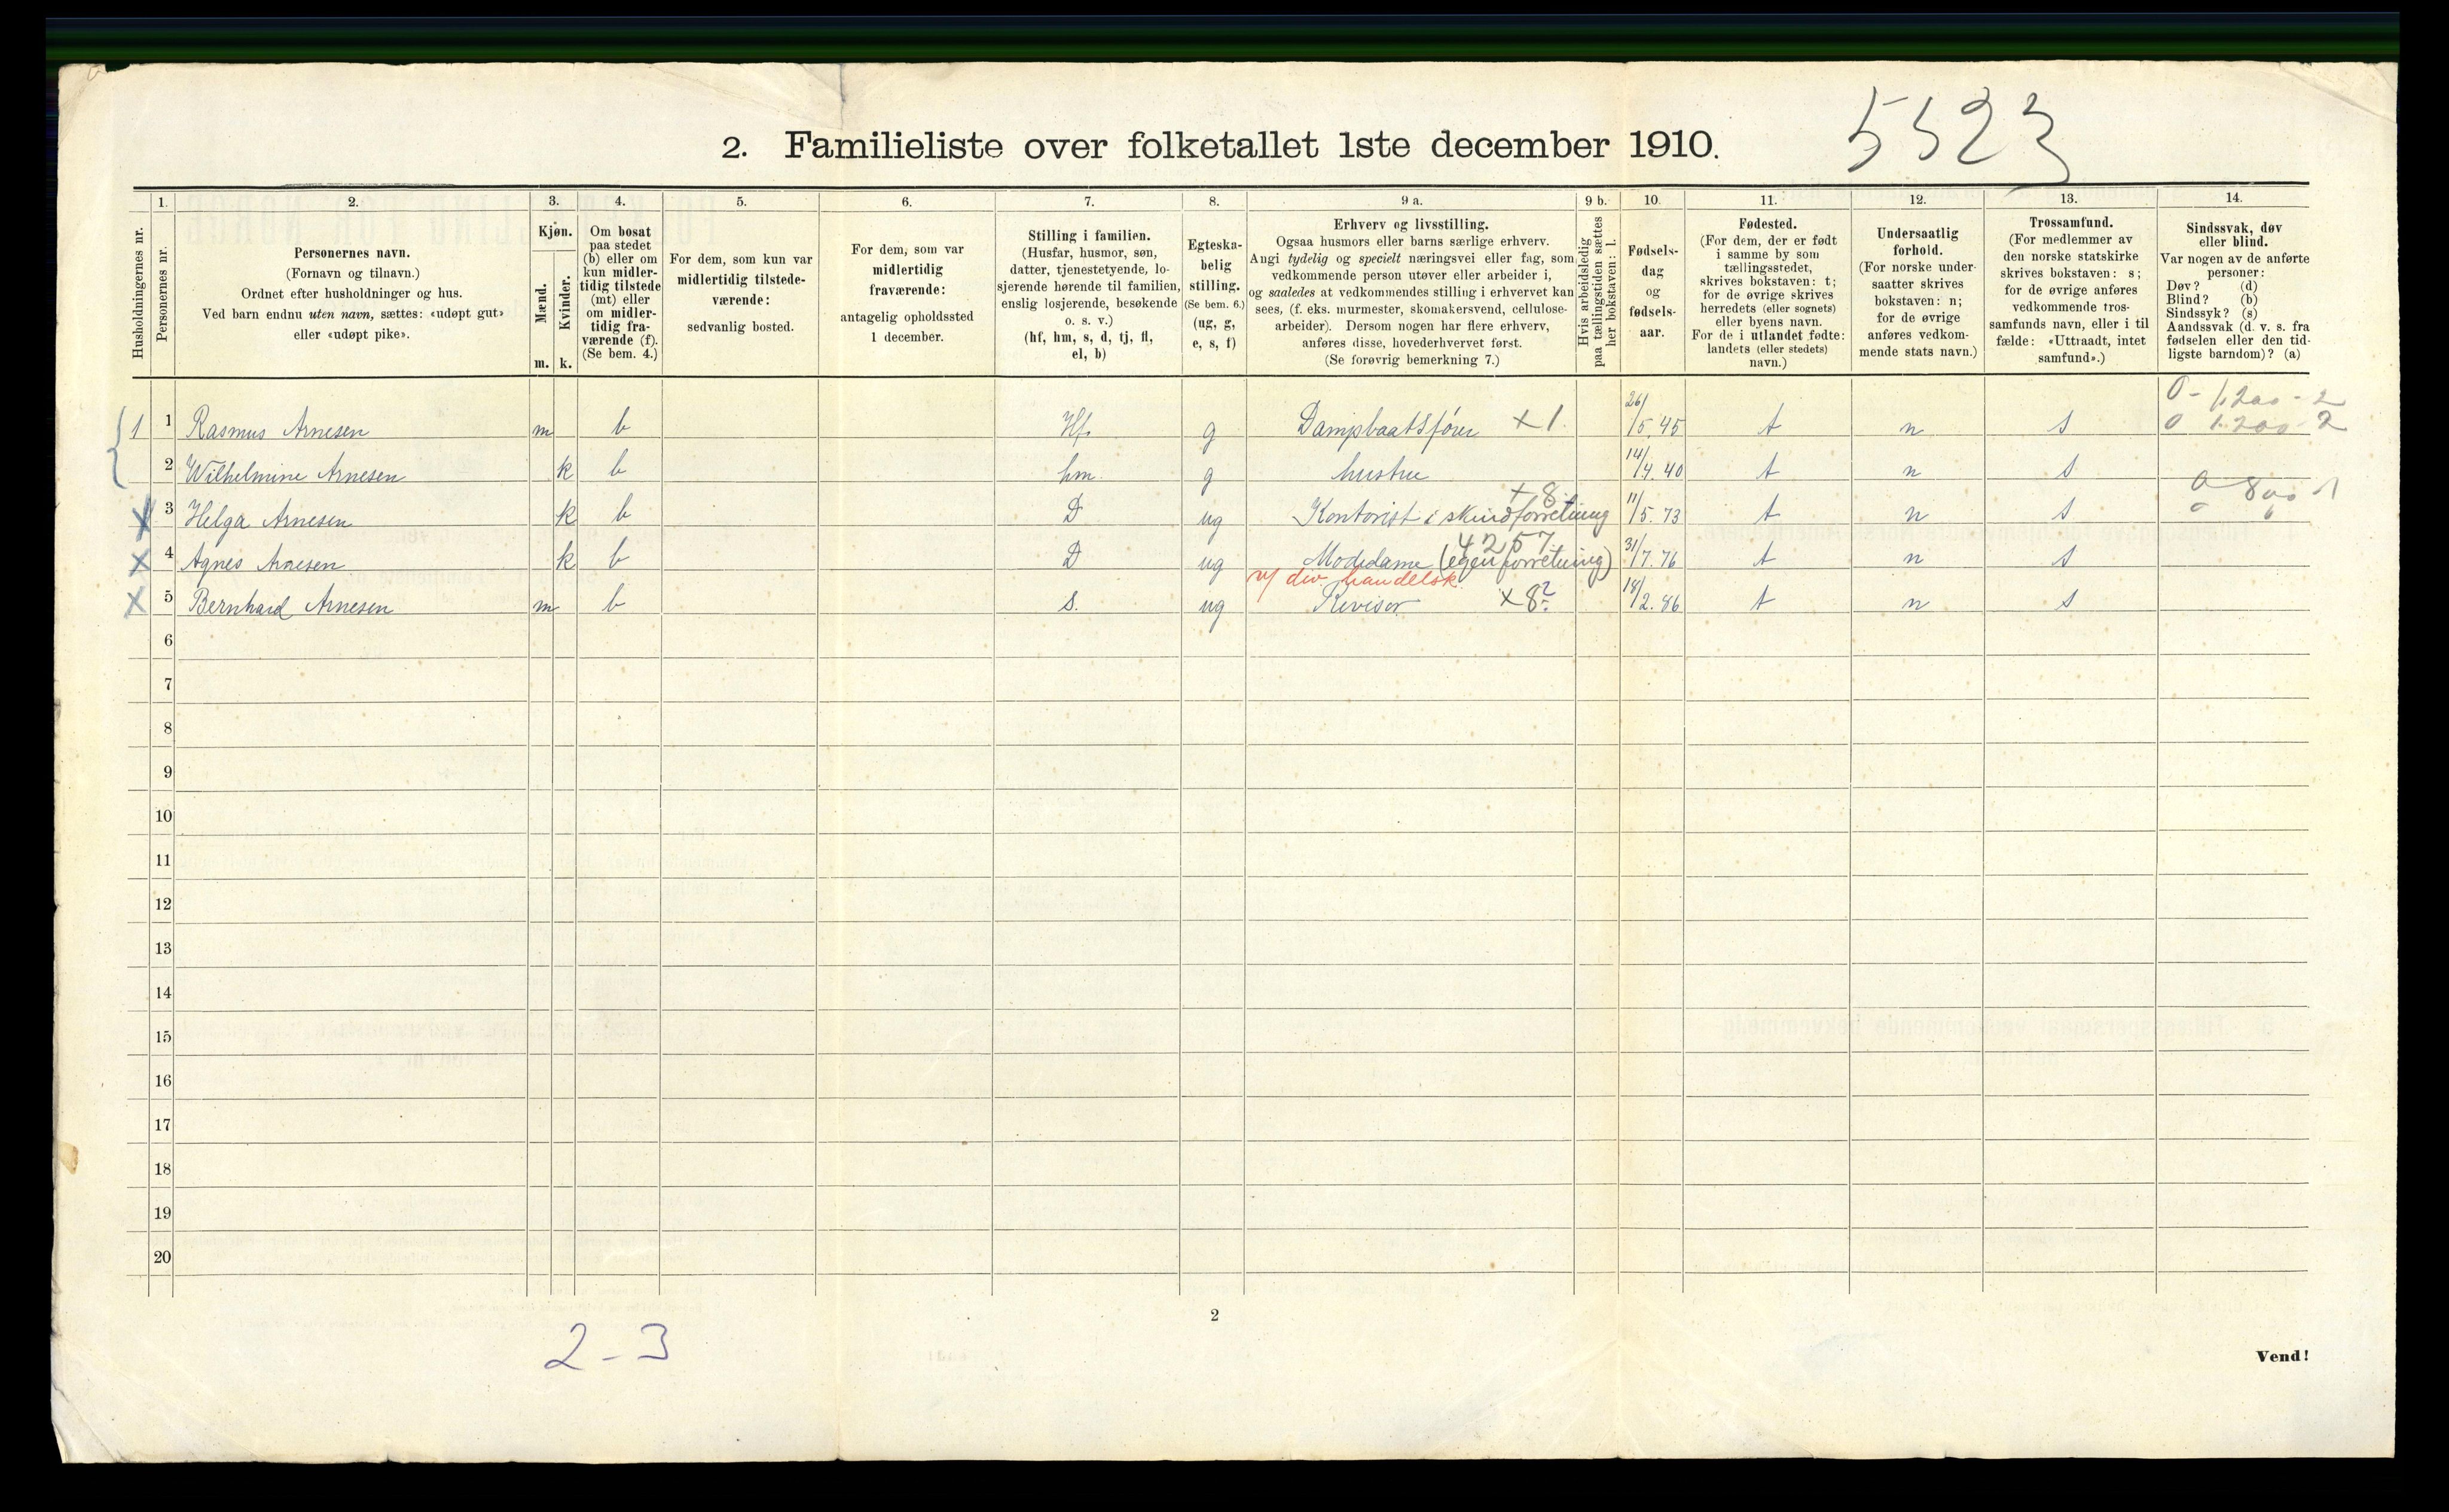 5523
2. Familieliste over folketallet 1ste december 1910.
1. 2. 3. 4. 5. 6. 7. 8. 9 a. 9 b. 10. 11. 12. 13. 14.
Husholdningernes nr.
Personernes nr.
Personernes navn.
(Fornavn og tilnavn.)
Ordnet efter husholdninger og hus.
Ved barn endnu uten navn, sættes: «udøpt gut»
eller «udøpt pike».
Kjøn.
Mænd.
Kvinder.
m. k.
Om bosat
paa stedet
(b) eller om
kun midler-
tidig tilstede
(mt) eller
om midler-
tidig fra-
værende (f).
(Se bem. 4.)
For dem, som kun var
midlertidig tilstede-
værende:
sedvanlig bosted.
For dem, som var
midlertidig
fraværende:
antagelig opholdssted
1 december.
Stilling i familien.
(Husfar, husmor, søn,
datter, tjenestetyende, lo-
sjerende hørende til familien,
enslig losjerende, besøkende
o. s. v.)
(hf, hm, s, d, tj, fl,
el, b)
Egteska-
belig
stilling.
(Se bem. 6.)
(ug, g,
e, s, f)
Erhverv og livsstilling.
Ogsaa husmors eller barns særlige erhverv.
Angi tydelig og specielt næringsvei eller fag, som
vedkommende person utøver eller arbeider i,
og saaledes at vedkommendes stilling i erhvervet kan
sees, (f. eks. murmester, skomakersvend, cellulose-
arbeider). Dersom nogen har flere erhverv,
anføres disse, hovederhvervet først.
(Se forøvrig bemerkning 7.)
Hvis arbeidsledig
paa tællingstiden sættes
her bokstaven: l.
Fødsels-
dag
og
fødsels-
aar.
Fødested.
(For dem, der er født
i samme by som
tællingsstedet,
skrives bokstaven: t;
for de øvrige skrives
herredets (eller sognets)
eller byens navn.
For de i utlandet fødte:
landets (eller stedets)
navn.)
Undersaatlig
forhold.
(For norske under-
saatter skrives
bokstaven: n;
for de øvrige
anføres vedkom-
mende stats navn.)
Trossamfund.
(For medlemmer av
den norske statskirke
skrives bokstaven: s;
for de øvrige anføres
vedkommende tros-
samfunds navn, eller i til-
fælde: «Uttraadt, intet
samfund».)
Sindssvak, døv
eller blind.
Var nogen av de anførte
personer:
Døv? (d)
Blind? (b)
Sindssyk? (s)
Aandssvak (d. v. s. fra
fødselen eller den tid-
ligste barndom)? (a)
0 - 1.200 - 2
1 1 Rasmus Arnesen m b Hf. g Dampbaatsfører x 1. 26/5. 45 t n s 0 1.200 2
2 Wilhelmine Arnesen k b hm. g hustru 14/4. 40 t n s
x 8. 0 800 1
X 3 Helga Arnesen k b D ug Kontorist i skindforretning 11/5. 73 t n s
4257
X 4 Agnes Arnesen k b D ug Modedame (egen forretning) 31/7. 76 t n s
v/ div. handelsk.
X 5 Bernhard Arnesen m b s. ug Revisor x 8? 18/2. 86 t n s
6
7
8
9
10
11
12
13
14
15
16
17
18
19
20
2
2 - 3
Vend!